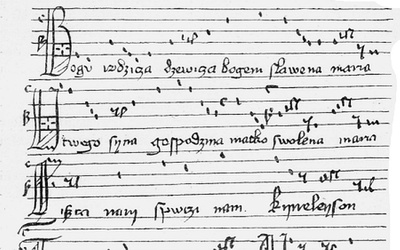 Bogu rodzicza dzewicza bogem slawena maria
U twego syna gospodzina matko swolena maria
nam spwczi nam. kyrieleyson